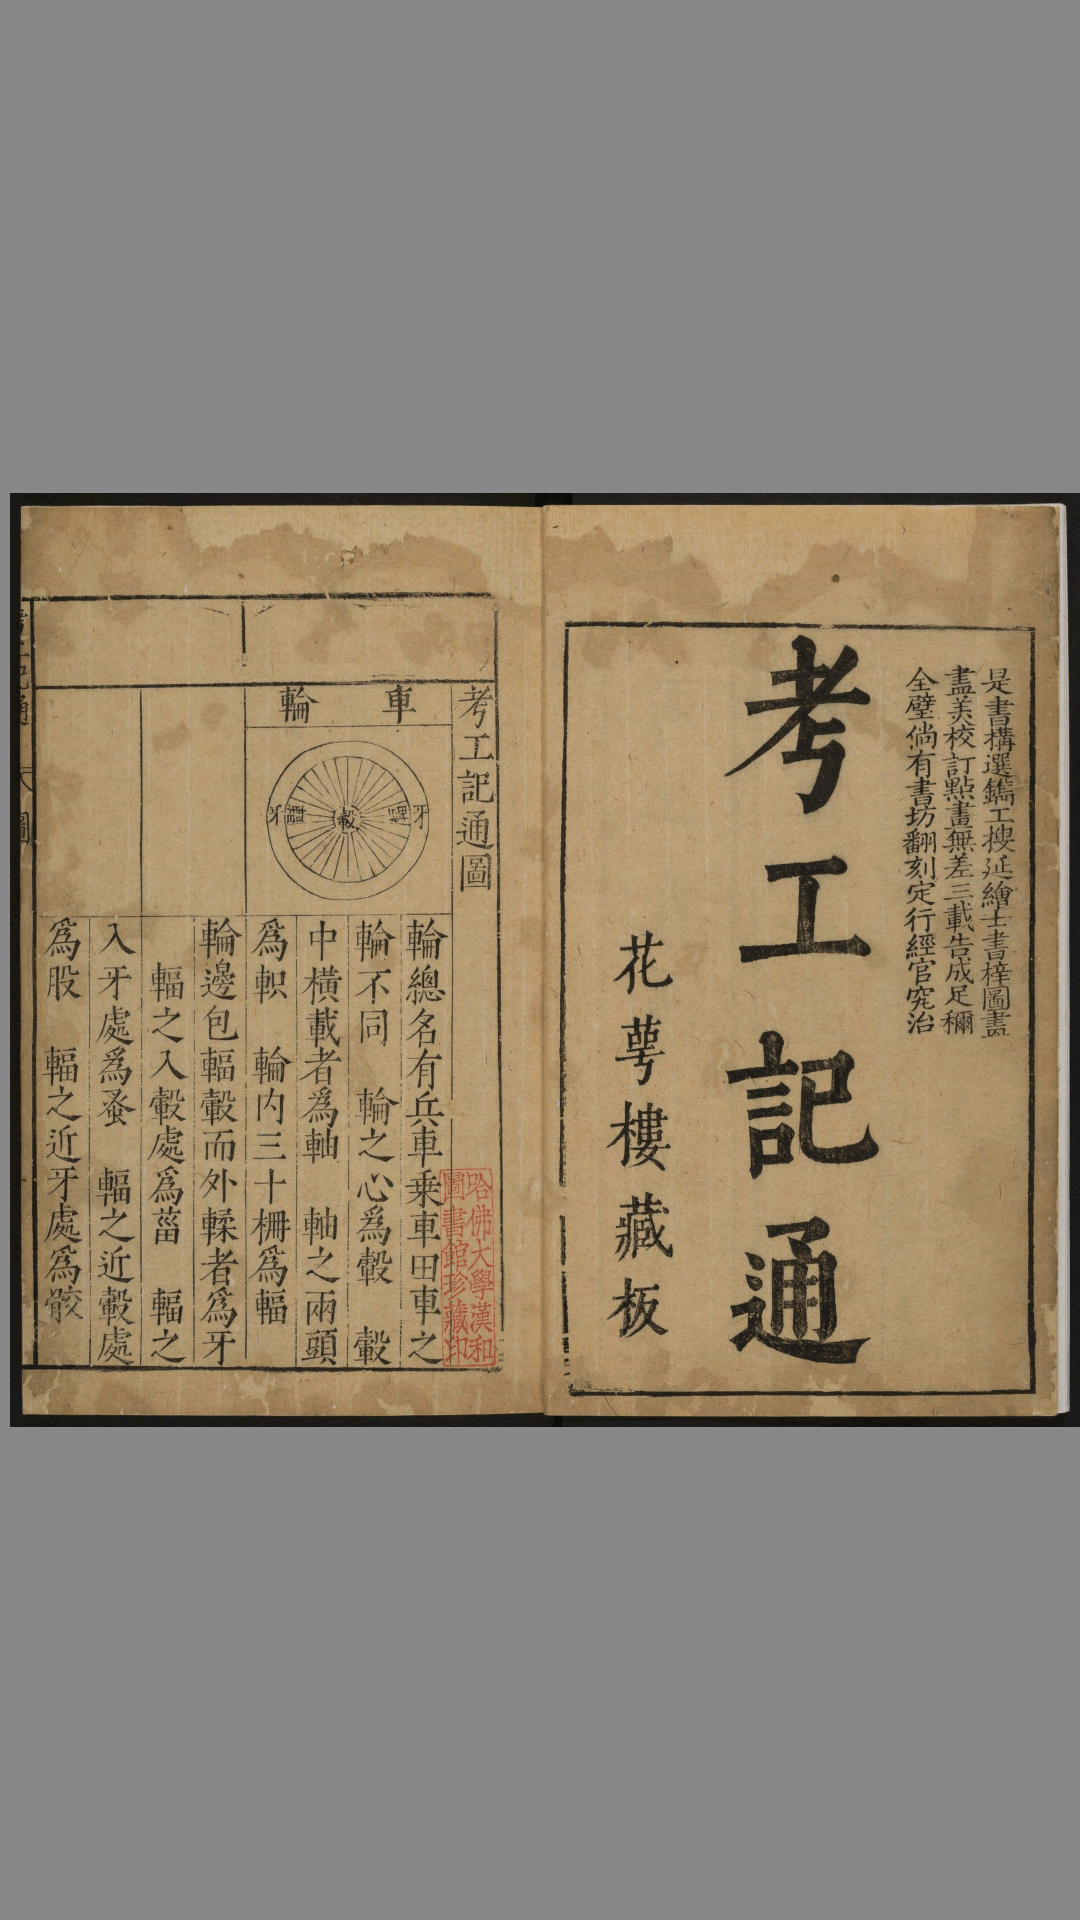 是書構選鐫工搜延繪士書梓圖盡
盡美校訂點畫無差三載告成足稱
全璧倘有書坊翻刻定行經官究治
考工記通
花萼樓藏板
考工記通圖
車輪
牙
輻
轂
輻
牙
輪總名有兵車乗車田車之
輪不同　輪之心爲轂　轂
中橫載者爲軸　軸之兩頭
爲軹　輪内三十柵爲輻
輪邊包輻轂而外輮者爲牙
輻之入轂處爲菑　輻之
入牙處爲蚤　輻之近轂處
爲股　輻之近牙處爲骹
哈佛大學漢和
圖書館珍藏印